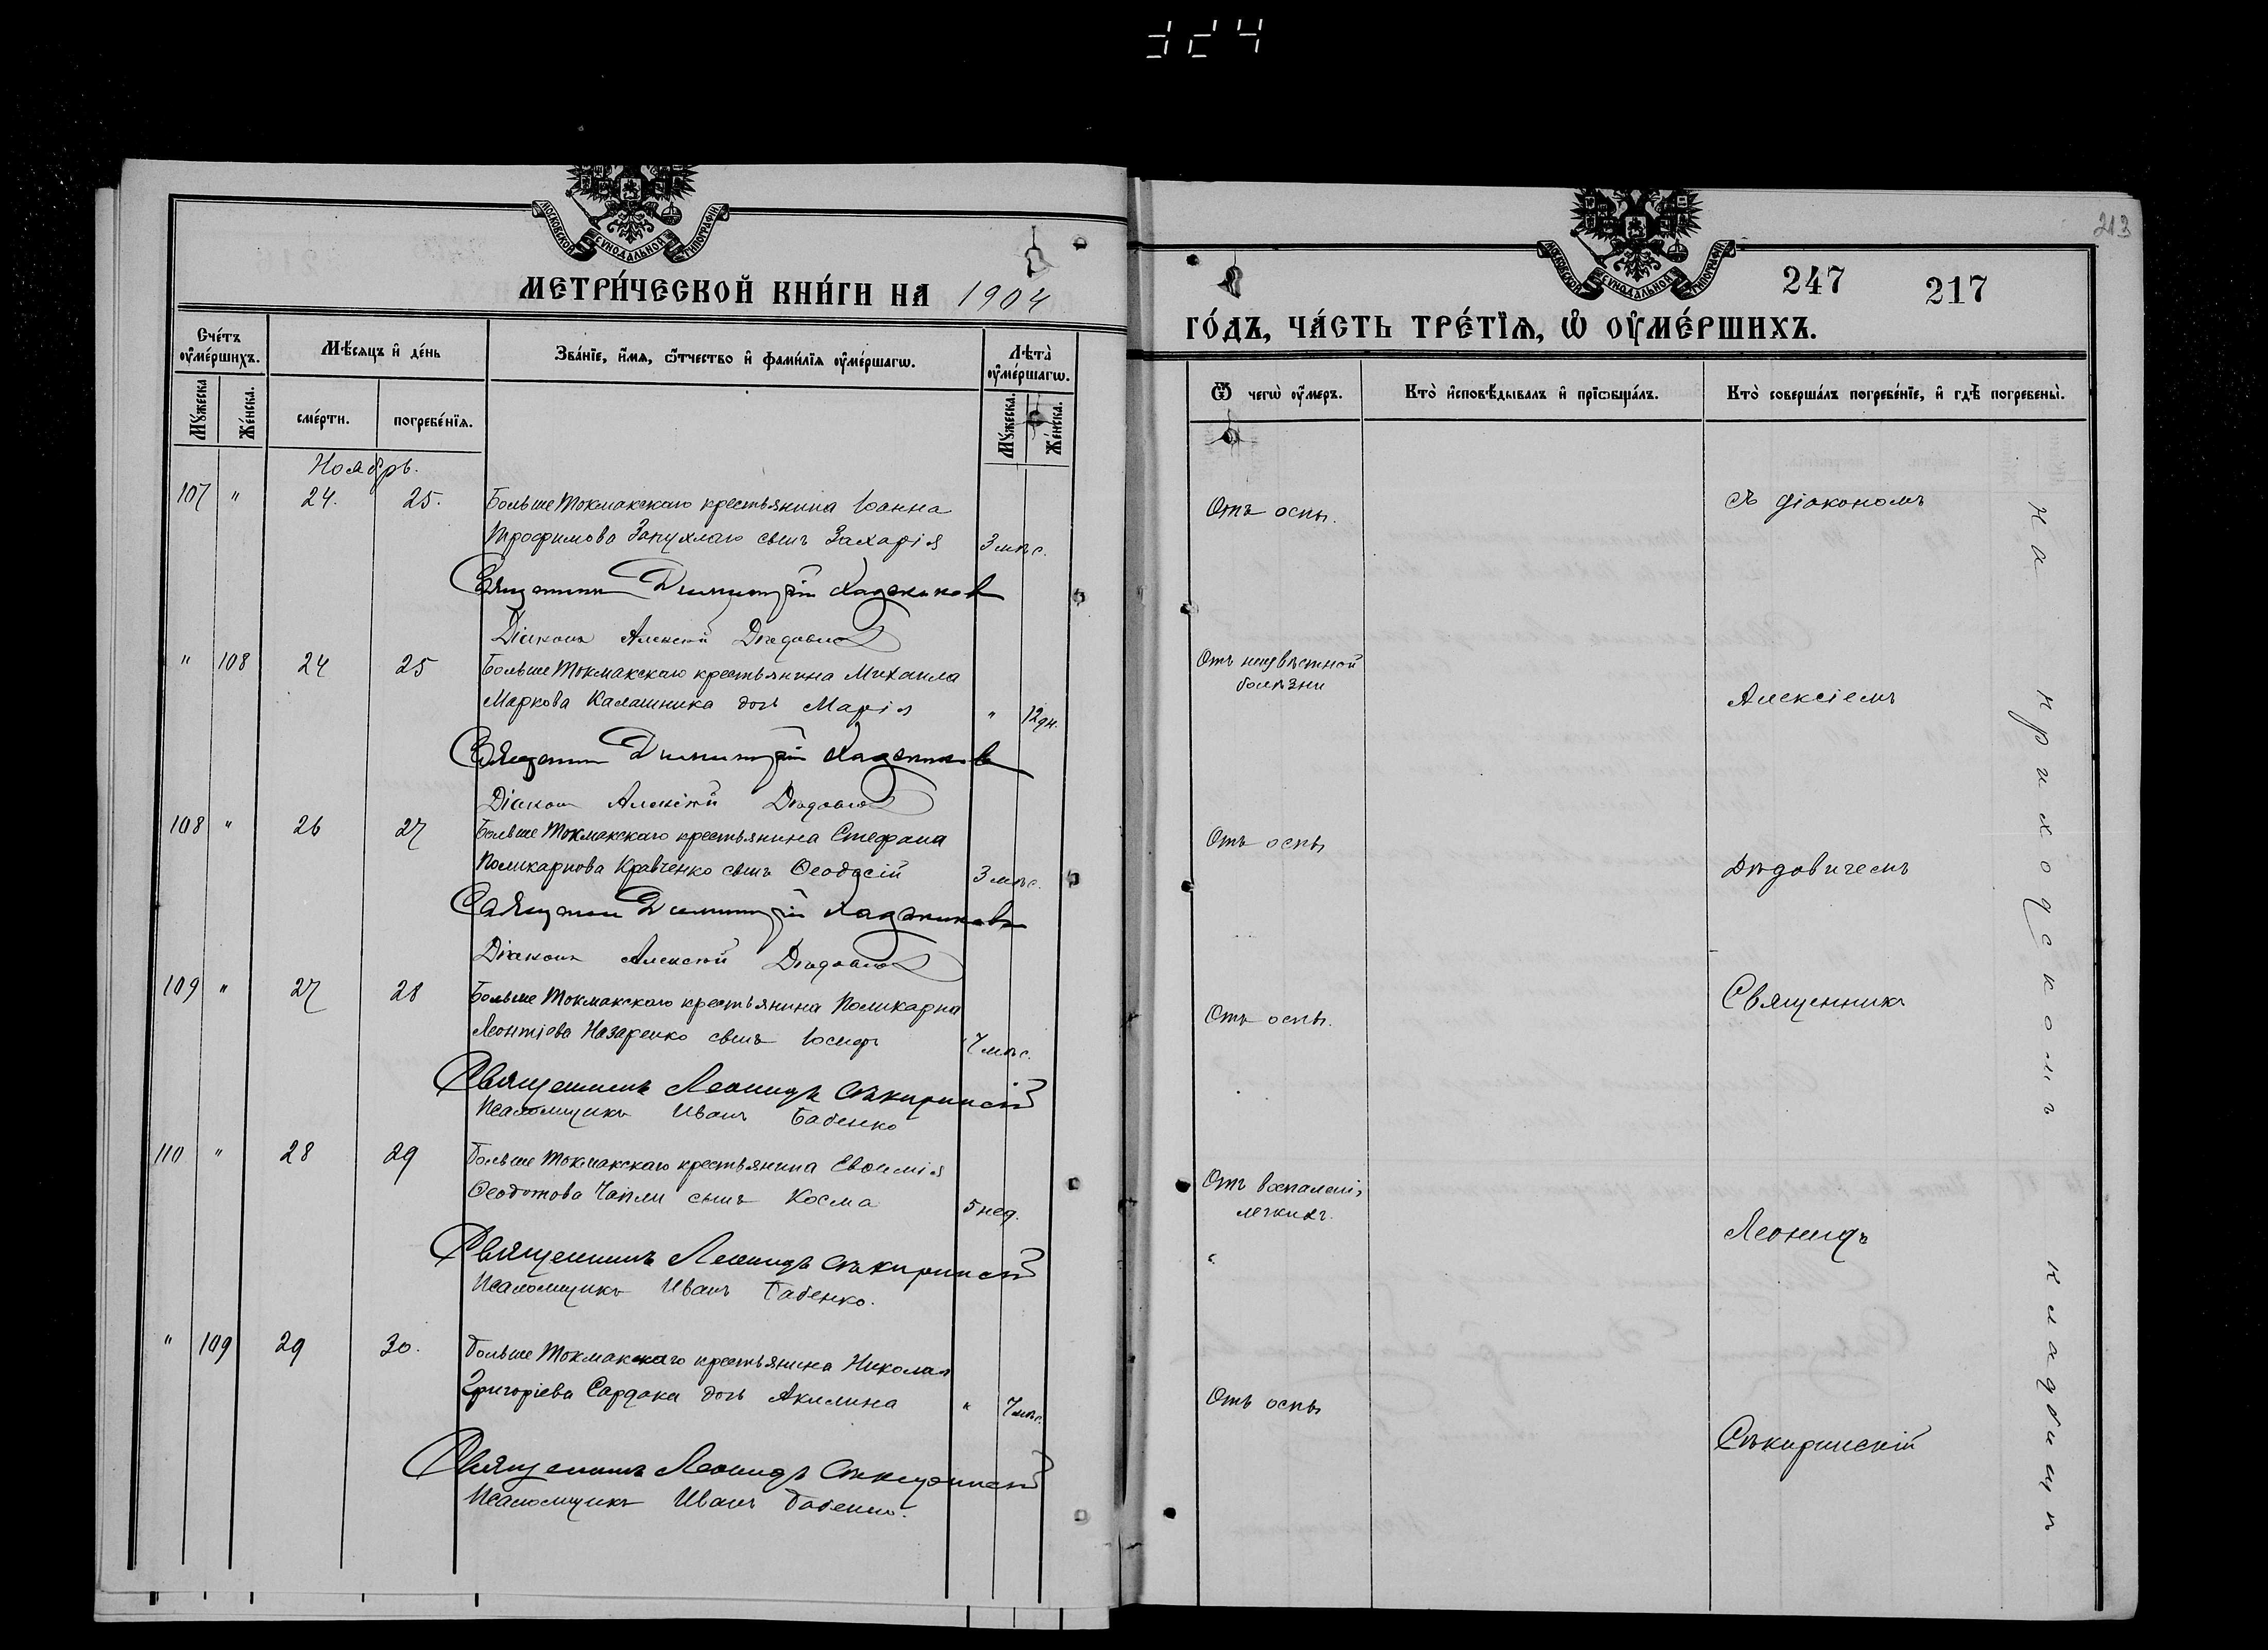 324
МОСКОВСКОЙ СУНОДАЛЬНОЙ ТИПОГРАФІИ.
МЕТРИ́ЧЕСКОЙ КНИ́ГИ НА 1904
Сче́тъ ᲂу҆ме́ршихъ.
Мѣ́сяцъ и҆ де́нь
Зва́нїе, и҆́мя, ѻ҆́тчество и҆ фами́лїя ᲂу҆ме́ршагѡ.
Лѣ́та ᲂу҆ме́ршагѡ.
Мꙋ́жеска
Же́нска.
сме́рти.
погребе́нїя.
Мꙋ́жеска.
Же́нска.
Ноябрь.
107 " 24. 25. Больше Токмакскаго крестьянина Іоанна
Трофимова Запухлаго сынъ Захарія 3 мѣс.
Священникъ Димитрій
Діаконъ Алексій Дѣдович
" 108 24 25 Больше Токмакскаго крестьянина Михаила
Маркова Калашника дочь Марія " 12 дн.
Священникъ Димитрій
Діаконъ Алексій Дѣдович
108 " 26 27 Больше Токмакскаго крестьянина Стефана
Поликарпова Кравченко сынъ Ѳеодосій 3 мѣс.
Священникъ Димитрій
Діаконъ Алексій Дѣдович
109 " 27 28 Больше Токмакскаго крестьянина Поликарпа
Леонтіева Назаренко сынъ Іосифъ 7 мѣс.
Священникъ Леонидъ Сѣкиринскій
Псаломщикъ Иванъ Бабенко
110 " 28 29 Больше Токмакскаго крестьянина Евѳимія
Ѳеодотова Чапли сынъ Косма 5 нед.
Священникъ Леонидъ Сѣкиринскій
Псаломщикъ Иванъ Бабенко.
" 109 29 30. Больше Токмакскаго крестьянина Николая
Григоріева Сардака дочь Акилина " 7 мѣс.
Священникъ Леонидъ Сѣкиринскій
Псаломщикъ Иванъ Бабенко.
МОСКОВСКОЙ СУНОДАЛЬНОЙ ТИПОГРАФІИ.
213
247 217
ГО́ДЪ, ЧА́СТЬ ТРЕ́ТЇѦ, Ѡ҆ ОУ҆МЕ́РШИХЪ.
Ѿ чегѡ̀ ᲂу҆́меръ.
Кто̀ и҆сповѣ́дывалъ и҆ прїѡбща́лъ.
Кто̀ соверша́лъ погребе́нїе, и҆ гдѣ̀ погребены̀.
Отъ оспы.
съ діакономъ
Отъ неизвѣстной
болѣзни
Алексіемъ
Отъ оспы
Дѣдовичемъ
Отъ оспы.
Священникъ
Отъ воспаленія
легкихъ.
Леонидъ
Отъ оспы
Сѣкиринскій
на приходскомъ кладбищѣ